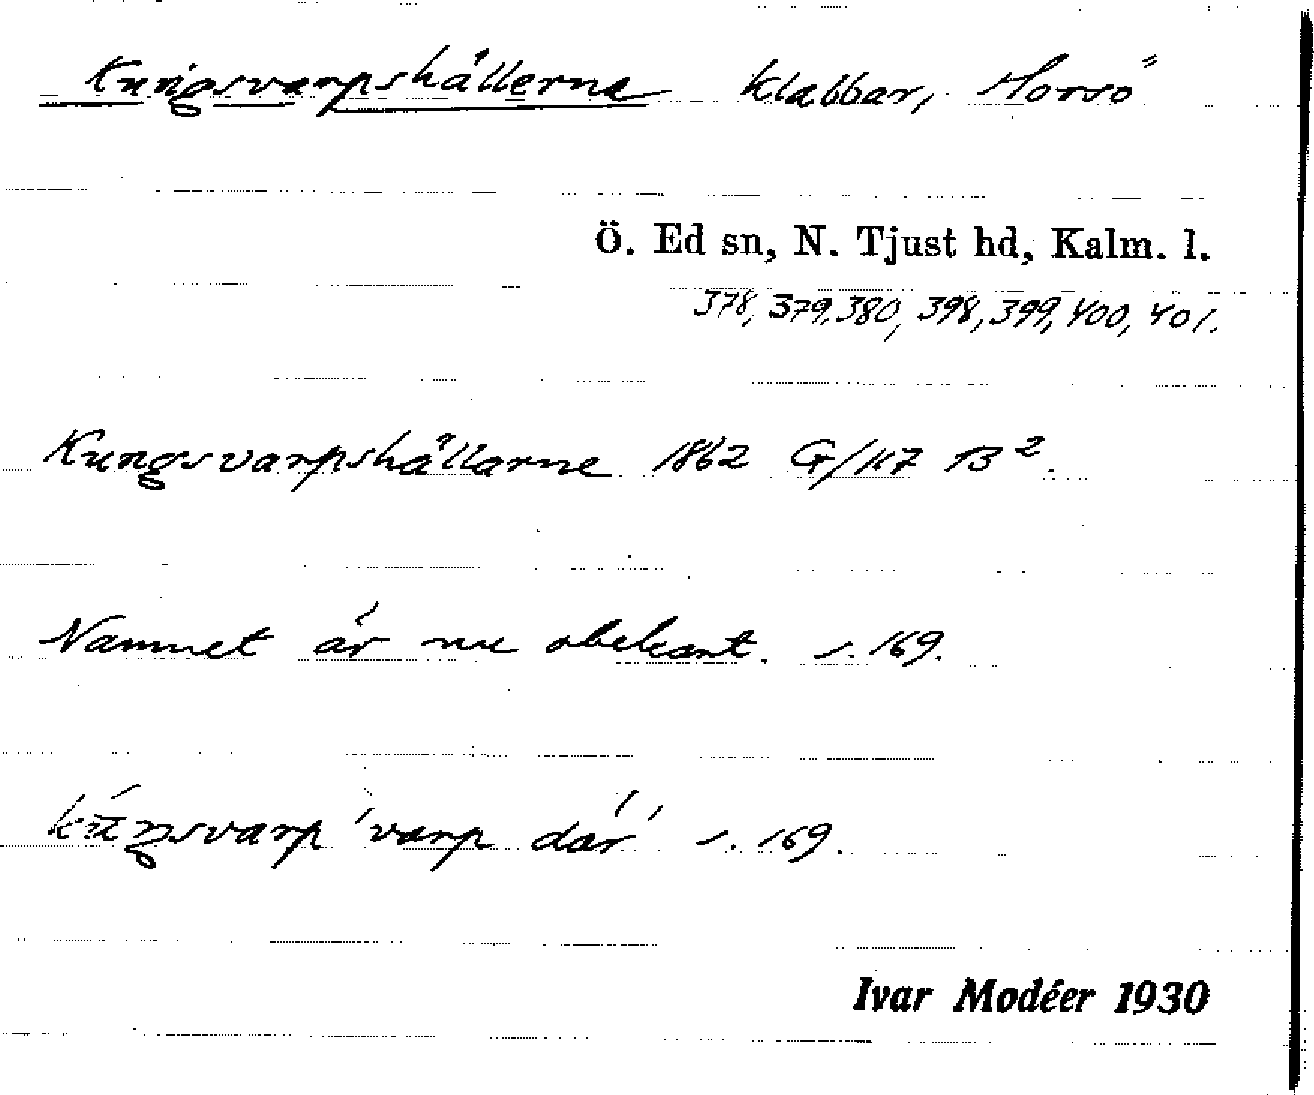 Kungsvarpshällerna klabbar, Horsö
Ö. Ed sn, N. Tjust hd, Kalm. l.
378, 379, 380, 398, 399, 400, 401.
Kungsvarpshällarne 1862 G/147 B².
Namnet är nu obekant. s. 169.
kúŋsvarp 'varp där' s. 169.
Ivar Modéer 1930